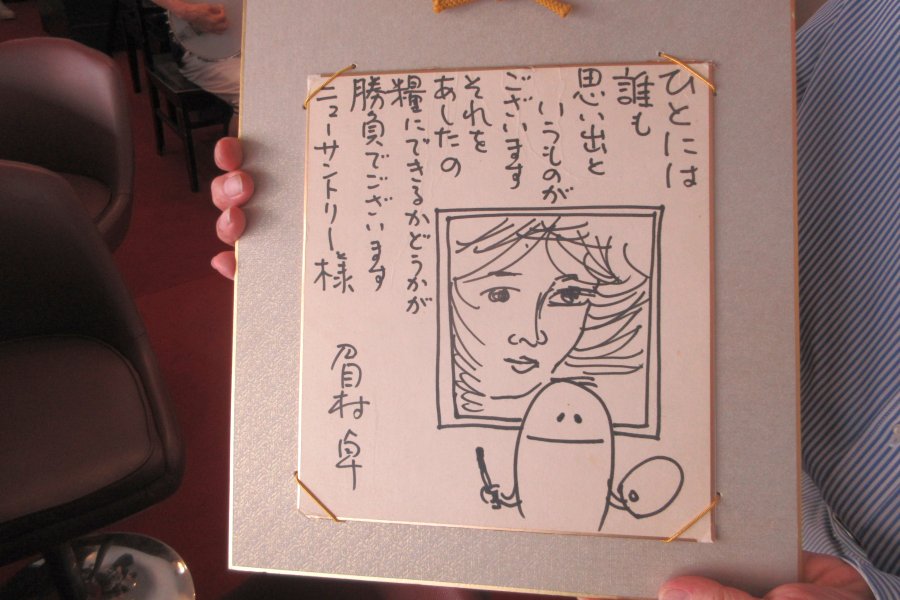 ひとには
誰も
思い出と
いうものが
ございます
それを
あしたの
糧にできるかどうかが
勝負でございます
ニューサントリー様
眉村卓